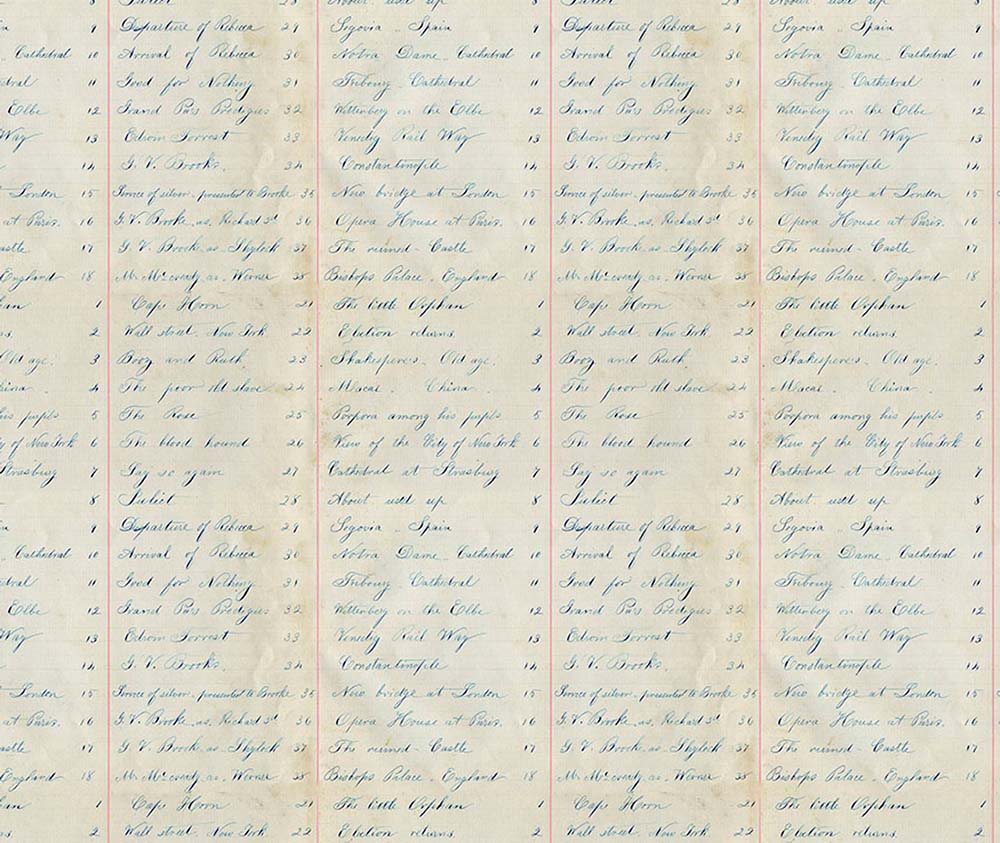 8 Juliet 28 About used up 8 Juliet 28 About used up 8
9 Departure of Rebecca 29 Segovia .. Spain 9 Departure of Rebecca 29 Segovia .. Spain 9
Cathedral 10 Arrival of Rebecca 30 Notra Dame.. Cathedral 10 Arrival of Rebecca 30 Notra Dame.. Cathedral 10
dral 11 Good for Nothing 31 Fribourg.. Cathedral 11 Good for Nothing 31 Fribourg.. Cathedral 11
Elbe 12 Grand Pass Prodigies 32 Wittenberg on the Elbe 12 Grand Pass Prodigies 32 Wittenberg on the Elbe 12
Way 13 Edwin Forrest 33 Venedig Rail Way 13 Edwin Forrest 33 Venedig Rail Way 13
14 G. V. Brooks. 34 Constantinople 14 G. V. Brooks. 34 Constantinople 14
t London 15 of silver. presented to Brooke 35 New bridge at London 15 of silver. presented to Brooke 35 New bridge at London 15
at Paris. 16 G. V. Brooke. as. Richard 3d 36 Opera House at Paris. 16 G. V. Brooke. as. Richard 3d 36 Opera House at Paris. 16
astle 17 G. V. Brooke as Shylock 37 The ruined - Castle 17 G. V. Brooke as Shylock 37 The ruined - Castle 17
England 18 Mr. McCready as. Werner 38 Bishops Palace. England 18 Mr. McCready as. Werner 38 Bishops Palace. England 18
han 1 Cape Horn 21 The little Orphan 1 Cape Horn 21 The little Orphan 1
ns. 2 Wall street. New York. 22 Election returns. 2 Wall street. New York. 22 Election returns. 2
Old age. 3 Booz and Ruth 23 Shakesperes.. Old age. 3 Booz and Ruth 23 Shakesperes.. Old age. 3
hina. 4 The poor old slave 24 Macas. China. 4 The poor old slave 24 Macas. China. 4
his pupils 5 The Rose 25 Porpora among his pupils 5 The Rose 25 Porpora among his pupils 5
ty of New York 6 The blood hound 26 View of the City of New York 6 The blood hound 26 View of the City of New York 6
Strasburg 7 Say so again 27 Cathedral at Strasburg 7 Say so again 27 Cathedral at Strasburg 7
8 Juliet 28 About used up 8 Juliet 28 About used up 8
9 Departure of Rebecca 29 Segovia .. Spain 9 Departure of Rebecca 29 Segovia .. Spain 9
Cathedral 10 Arrival of Rebecca 30 Notra Dame.. Cathedral 10 Arrival of Rebecca 30 Notra Dame.. Cathedral 10
dral 11 Good for Nothing 31 Fribourg.. Cathedral 11 Good for Nothing 31 Fribourg.. Cathedral 11
Elbe 12 Grand Pass Prodigies 32 Wittenberg on the Elbe 12 Grand Pass Prodigies 32 Wittenberg on the Elbe 12
Way 13 Edwin Forrest 33 Venedig Rail Way 13 Edwin Forrest 33 Venedig Rail Way 13
14 G. V. Brooks. 34 Constantinople 14 G. V. Brooks. 34 Constantinople 14
t London 15 of silver. presented to Brooke 35 New bridge at London 15 of silver. presented to Brooke 35 New bridge at London 15
at Paris. 16 G. V. Brooke. as. Richard 3d 36 Opera House at Paris. 16 G. V. Brooke. as. Richard 3d 36 Opera House at Paris. 16
astle 17 G. V. Brooke as Shylock 37 The ruined - Castle 17 G. V. Brooke as Shylock 37 The ruined - Castle 17
England 18 Mr. McCready as. Werner 38 Bishops Palace. England 18 Mr. McCready as. Werner 38 Bishops Palace. England 18
han 1 Cape Horn 21 The little Orphan 1 Cape Horn 21 The little Orphan 1
ns. 2 Wall street. New York. 22 Election returns. 2 Wall street. New York. 22 Election returns. 2